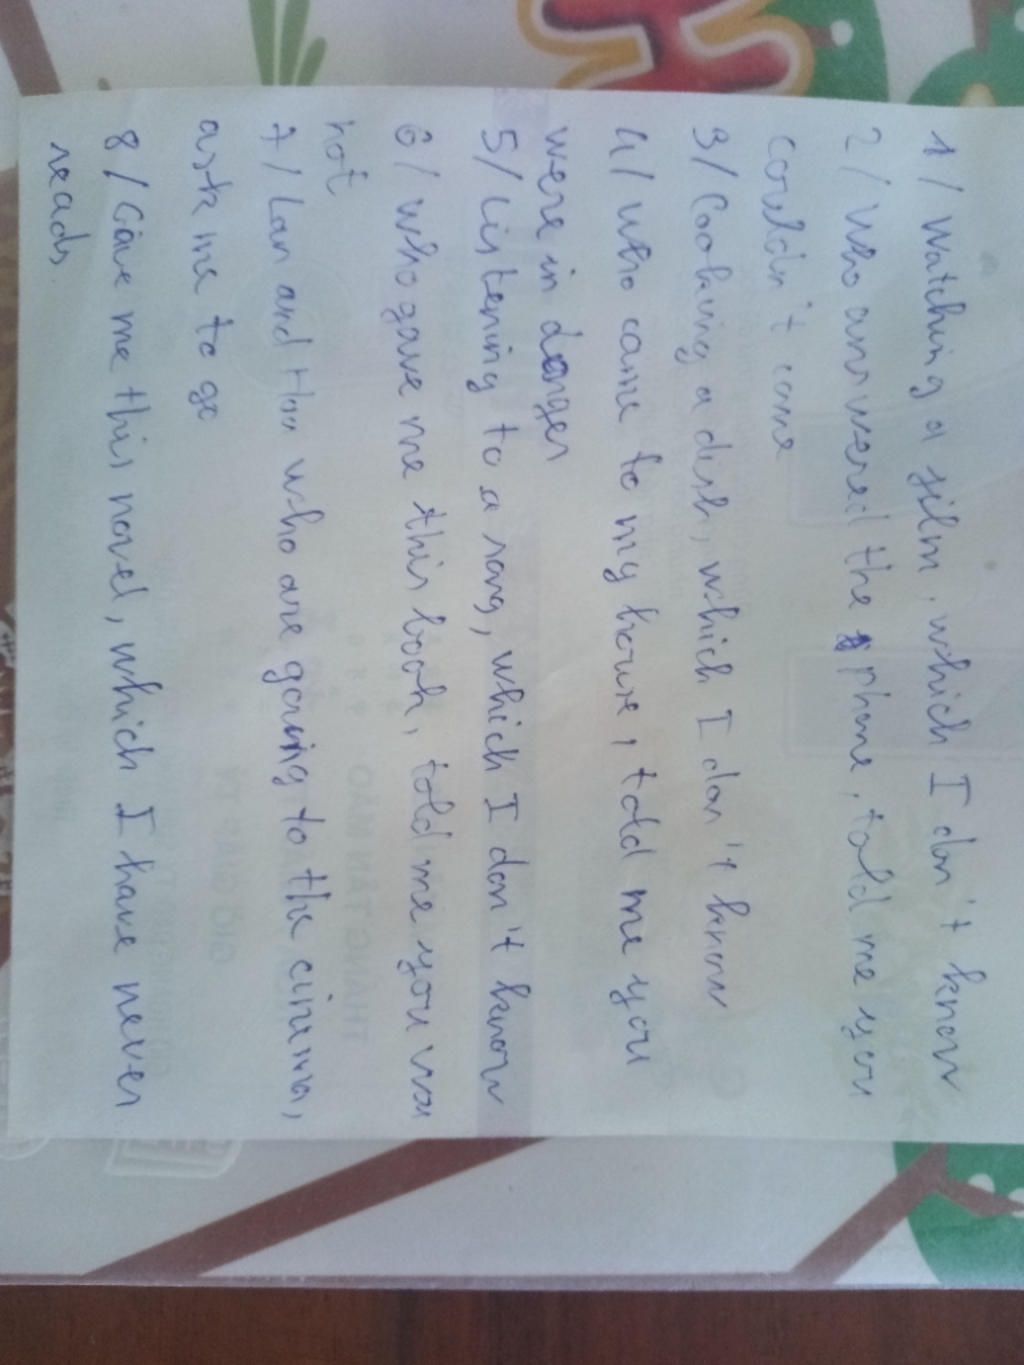 1/ Watching a film, which I don't know
2/ Who answered the phone, told me you
couldn't come
3/ Cooking a dish, which I don't know
4/ who came to my house, told me you
were in danger
5/ Listening to a song, which I don't know
6/ who gave me this book, told me you was
hot
7/ Lan and Hoa who are gowing to the cinema,
ask me to go
8/ Gave me this novel, which I have never
reads